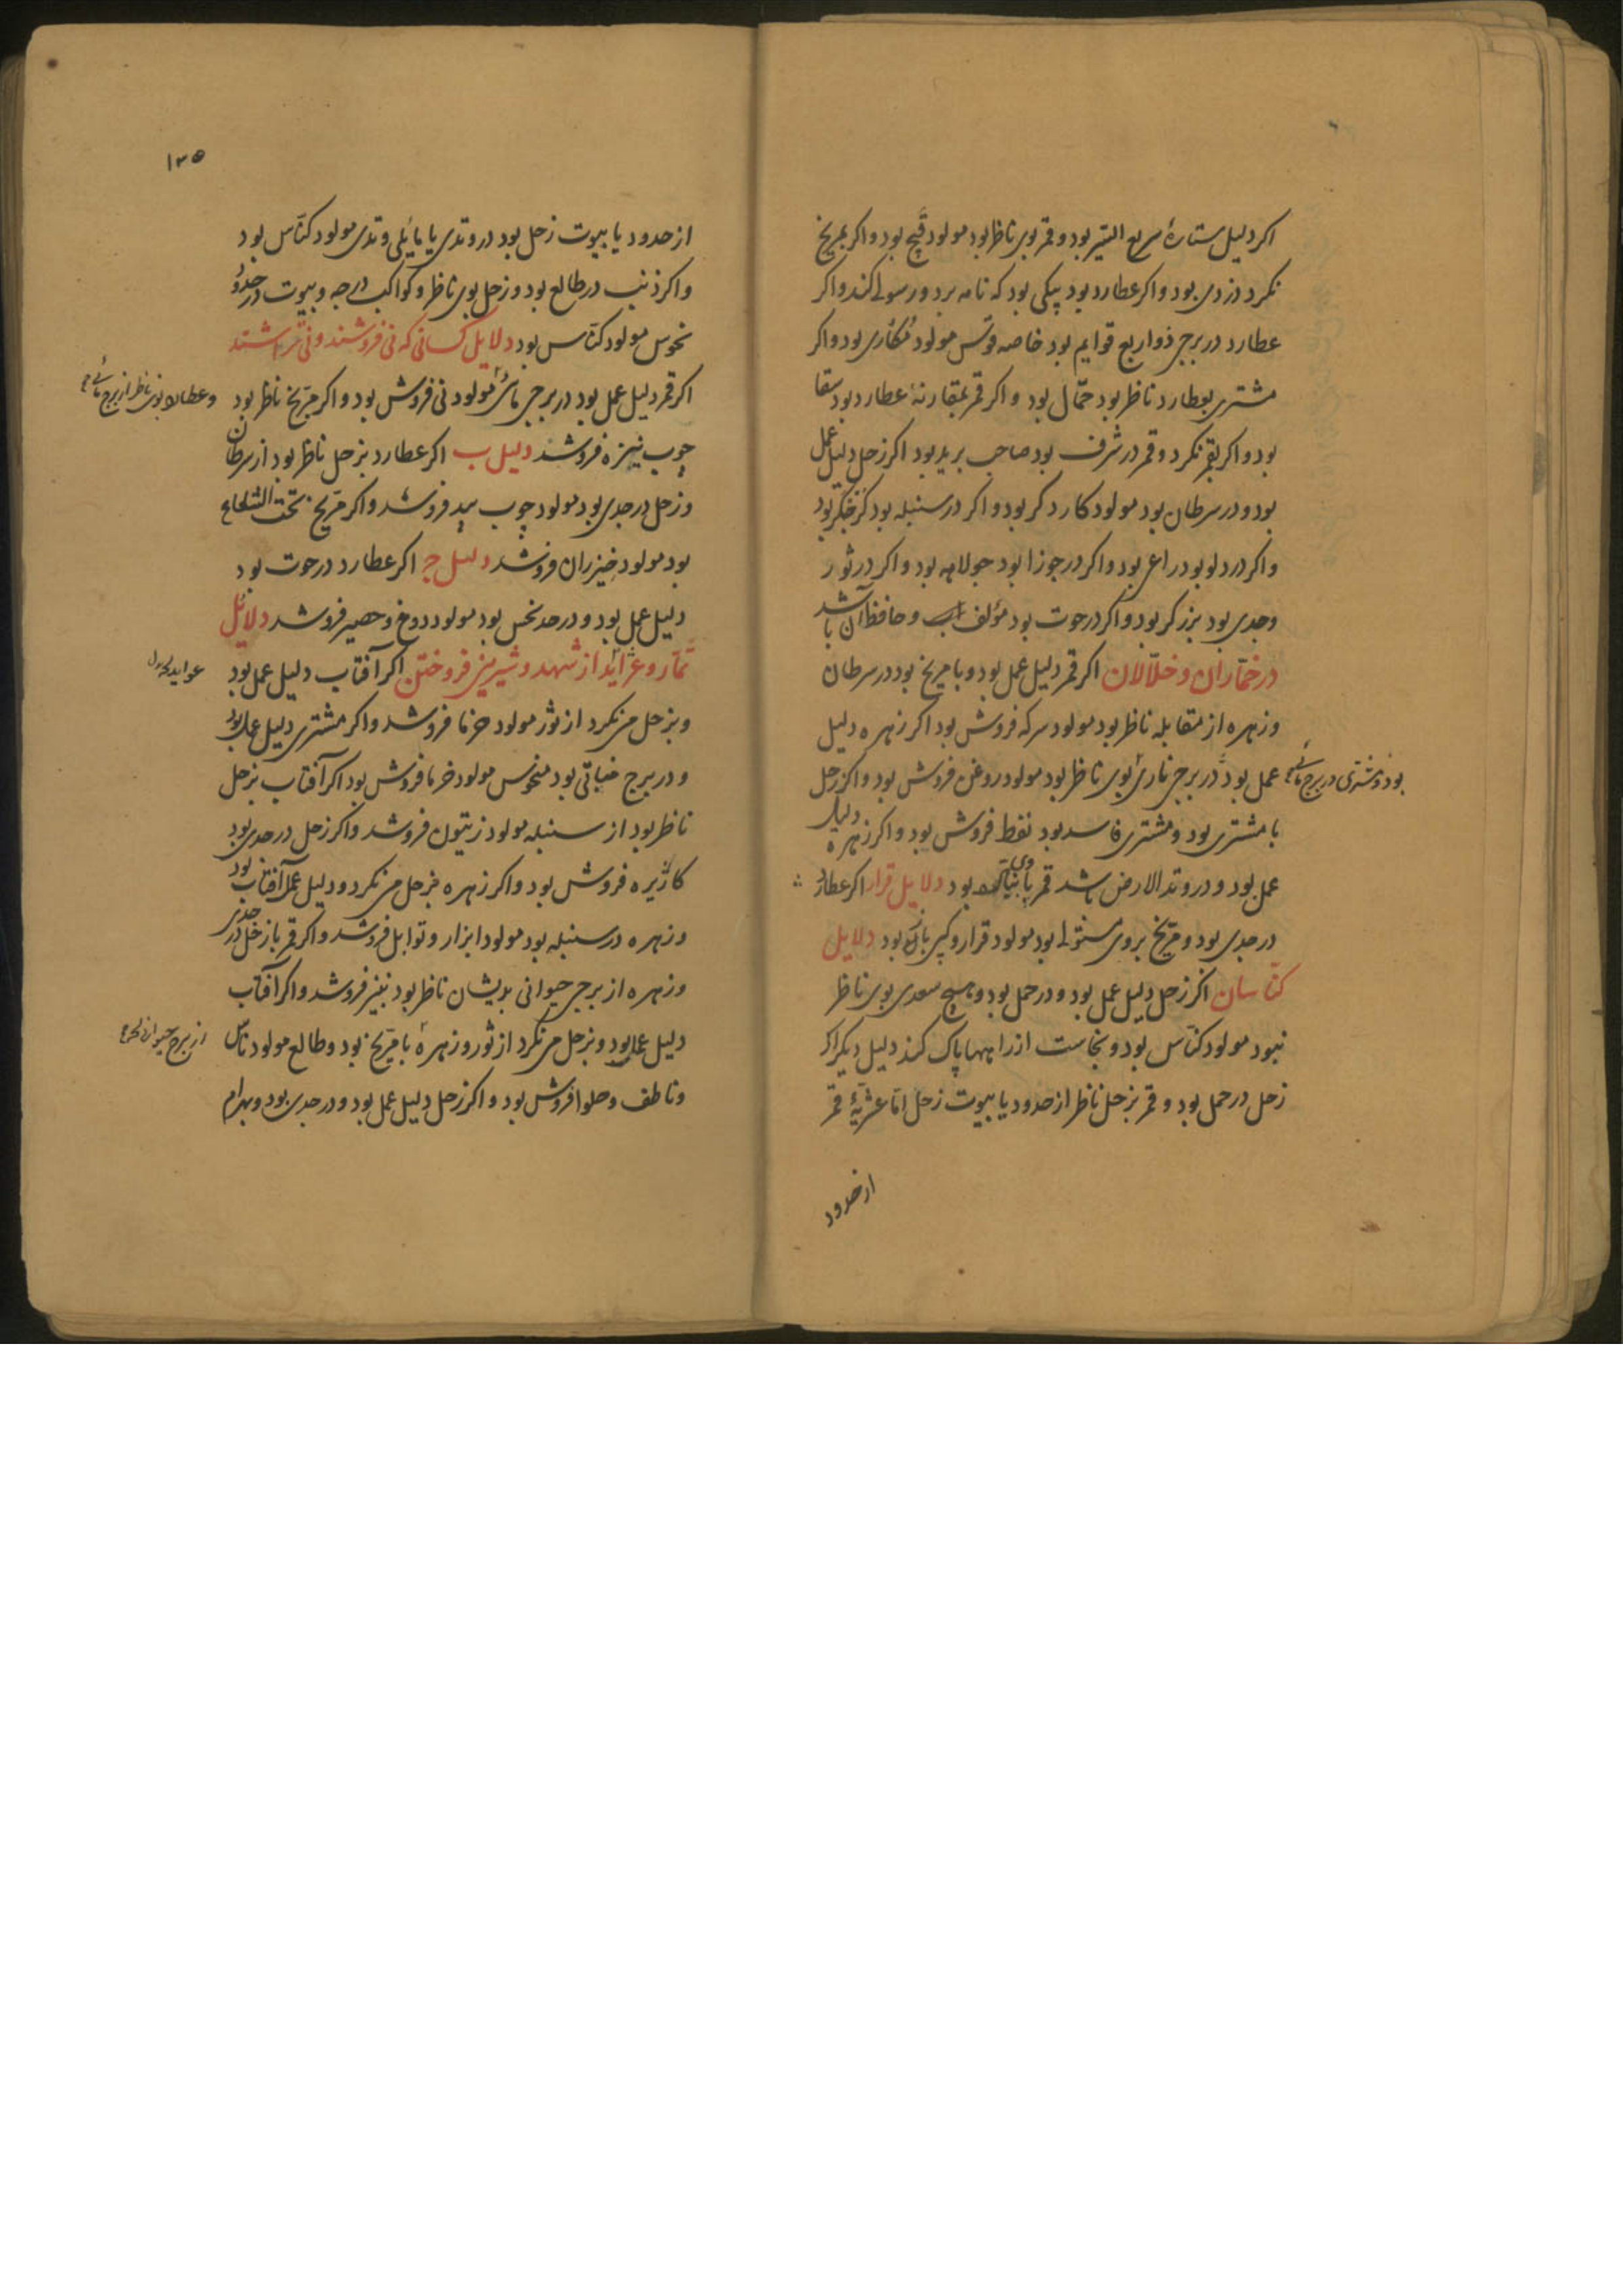 اکر دلیل ستارهٔ سریع السّیر بود و قمر بوی ناظر بود مولود فیج بود و اکر بمریخ
نکرد دزدی بود و اکر عطارد بود پیکی بود که نامه برد و رسولے کند و اکر
عطارد در برجی ذو اربع قوایم بود خاصه قوس مولود مکاری بود و اکر
مشتری بعطارد ناظر بود حمّال بود و اکر قمر بمقارنهٔ عطارد بود سقا
بود و اکر بقمر نکرد و قمر در شرف بود صاحب برید بود اکر زحل دلیل عمل
بود و در سرطان بود مولود کاردکر بود و اکر در سنبله بود
و اکر در دلو بود زراعی بود و اکر در جوزا بود جولاهه بود و اکر در ثور
و جدی بود برزکر بود و اکر در حوت بود مؤلف و حافظ آن باشد
در خمّاران و خلّالان اکر قمر دلیل عمل بود و با مریخ بود در سرطان
و زهره از مقابله ناظر بود مولود سرکه فروش بود اکر زهره دلیل
عمل بود در برجی ناری بوی ناظر بود مولود روغن فروش بود و اکر زحل
بود و مشتری در برج مائے
با مشتری بود و مشتری فاسد بود نفط فروش بود و اکر زهره دلیل
عمل بود و در وتد الارض باشد قمر بود دلایل قرار اکر عطارد
در جدی بود و مریخ بروی مستولے بود مولود قرار و بود دلایل
کنّاسان اکر زحل دلیل عمل بود و در حمل بود و هیچ سعدی بوی ناظر
نبود مولود کنّاس بود و نجاست از راهها پاک کند دلیل دیکر اکر
زحل در حمل بود و قمر بزحل ناظر از حدود یا بیوت زحل اثنا عشریهٔ قمر
از حدود
۱۳۵
از حدود یا بیوت زحل بود در وتدی یا مایلی وتدی مولود کنّاس بود
و اکر ذنب در طالع بود و زحل بوی ناظر و کواکب درجه و بیوت در حدود
نحوس مولود کنّاس بود دلایل کسانی که نی فروشند و نی تراشند
اکر قمر دلیل عمل بود در برجی مائی مولود نی فروش بود و اکر مرّیخ ناظر بود
و عطارد بوی ناظر از برج مائے
چوب نیزه فروشد دلیل ب اکر عطارد بزحل ناظر بود از سرطان
و زحل در جدی بود مولود چوب بید فروشد و اکر مرّیخ تحت الشعاع
بود مولود خیزران فروشد دلیل ج اکر عطارد در حوت بود
دلیل عمل بود و در حد نحس بود مولود دوخ و حصیر فروشد دلائل
تمّار و از شهد و شیرینی فروختن اکر آفتاب دلیل عمل بود
و بزحل می نکرد از ثور مولود خرما فروشد و اکر مشتری دلیل عمل بود
و در برج نباتی بود منحوس مولود خرما فروش بود اکر آفتاب بزحل
ناظر بود از سنبله مولود زیتون فروشد و اکر زحل در جدی بود
کاژیره فروش بود و اکر زهره بزحل می نکرد و دلیل عمل آفتاب بود
و زهره در سنبله بود مولود ابزار و توابل فروشد و اکر قمر با زحل در جدی
و زهره از برجی حیوانی بدیشان ناظر بود پنیر فروشد و اکر آفتاب
دلیل عمل بود و بزحل می نکرد از ثور و زهره با مرّیخ بود و طالع مولود
و ناطف و حلوا فروش بود و اکر زحل دلیل عمل بود و در جدی بود و بهرام